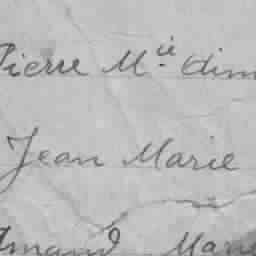 Pierre M.ie Aim
Jean Marie
Armand Marie